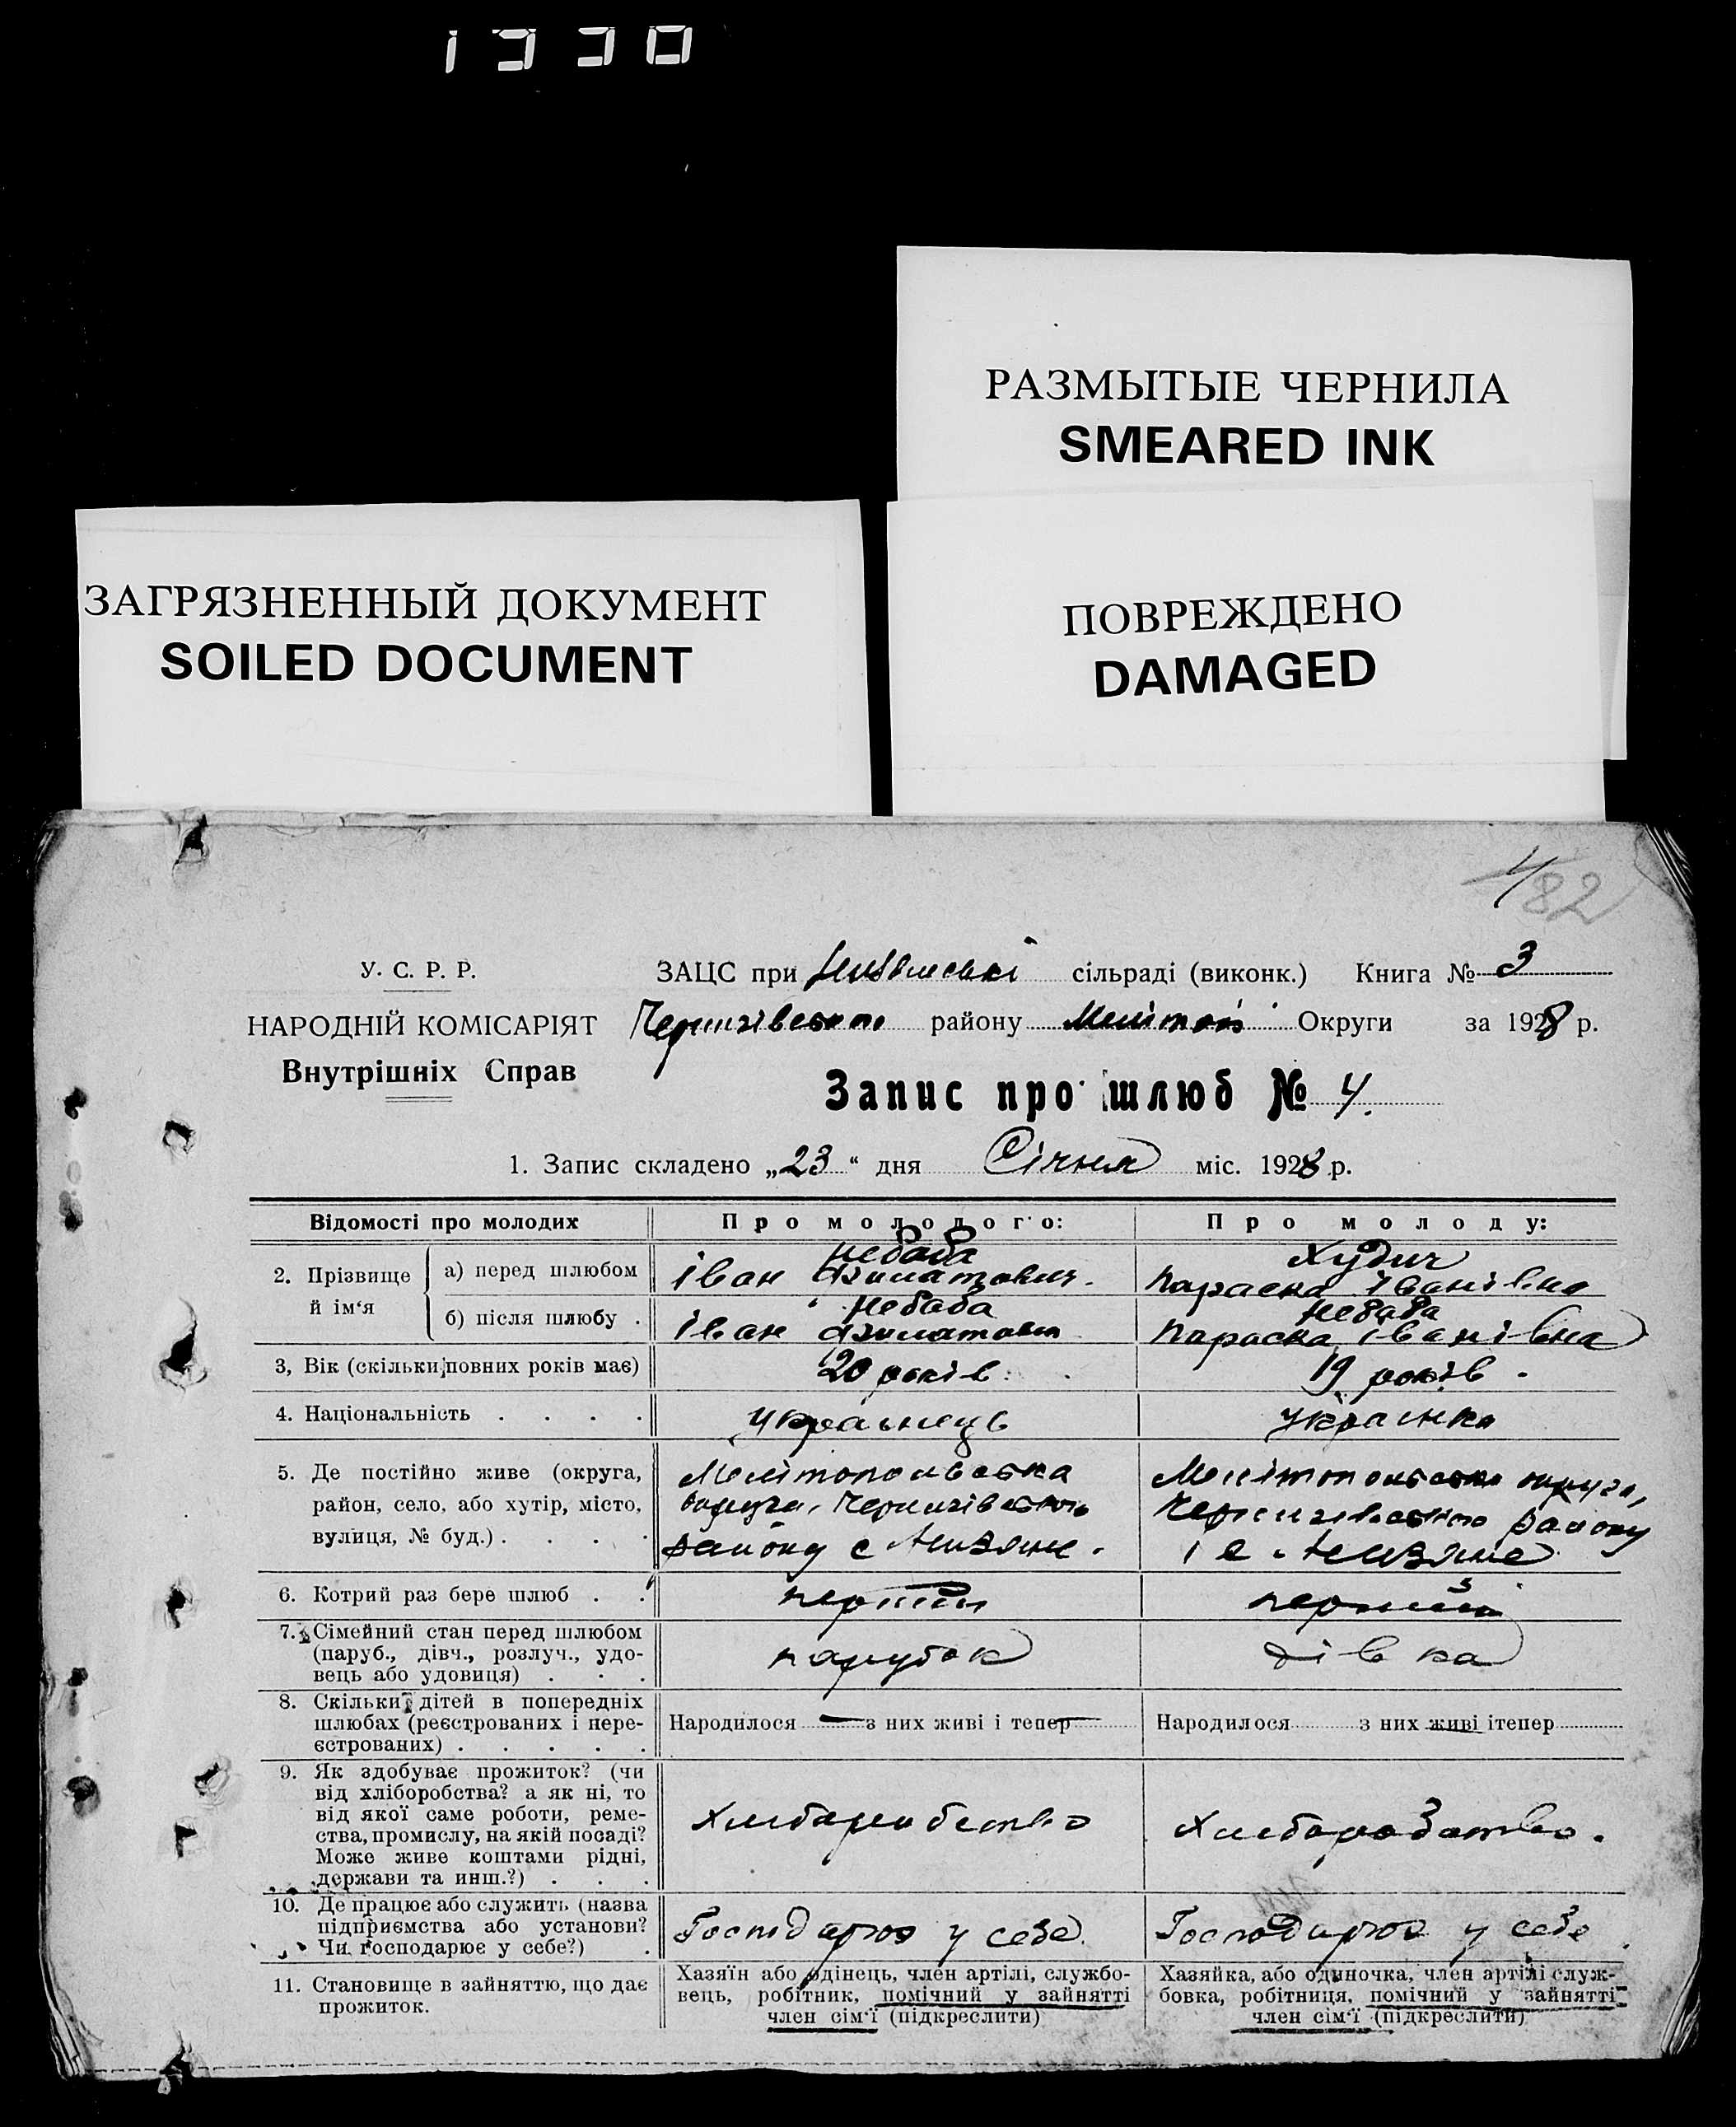 1330
РАЗМЫТЫЕ ЧЕРНИЛА
SMEARED INK
ЗАГРЯЗНЕННЫЙ ДОКУМЕНТ
SOILED DOCUMENT
ПОВРЕЖДЕНО
DAMAGED
4
82
У. С. Р. Р.
НАРОДНІЙ КОМІСАРІЯТ
Внутрішніх Справ
ЗАЦС при сільраді (виконк.) Книга № 3
Чернигівського району Меліто́п Округи за 1928 р.
Запис про шлюб № 4.
1. Запис складено „23“ дня Січня міс. 1928 р.
Відомості про молодих
Про молодого:
Про молоду:
2. Прізвище й ім‘я
а) перед шлюбом
Небаба
Іван Филатович.
Худич
Параска Іванівна
б) після шлюбу .
Небаба
Іван Филатович
Небаба
Параска Іванівна
3, Вік (скільки повних років має)
20 років.
19 років.
4. Національність . . . .
Українець
Українка
5. Де постійно живе (округа,
район, село, або хутір, місто,
вулиця, № буд.) . . . .
Мелітопольська
округа, Чернигівського
району с
Мелітопольська округа,
Чернигівського району
с
6. Котрий раз бере шлюб . .
перший
перший
7. Сімейний стан перед шлюбом
(паруб., дівч., розлуч., удо-
вець або удовиця) . . .
парубок
дівка
8. Скільки дітей в попередніх
шлюбах (реєстрованих і нере-
єстрованих) . . . . .
Народилося — з них живі і тепер —
Народилося з них живі ітепер
9. Як здобуває прожиток? (чи
від хліборобства? а як ні, то
від якої саме роботи, реме-
ства, промислу, на якій посаді?
Може живе коштами рідні,
держави та инш.?) . . .
Хлебаробство
Хлебаробство.
10. Де працює або служить (назва
підприємства або установи?
Чи господарює у себе?) .
Господарює у себе.
Господарює у себе.
11. Становище в зайняттю, що дає
прожиток.
Хазяїн або одінець, член артілі, службо-
вець, робітник, помічний у зайнятті
член сім‘ї (підкреслити)
Хазяйка, або одиночка, член артілі служ-
бовка, робітниця, помічний у зайнятті
член сім‘ї (підкреслити)